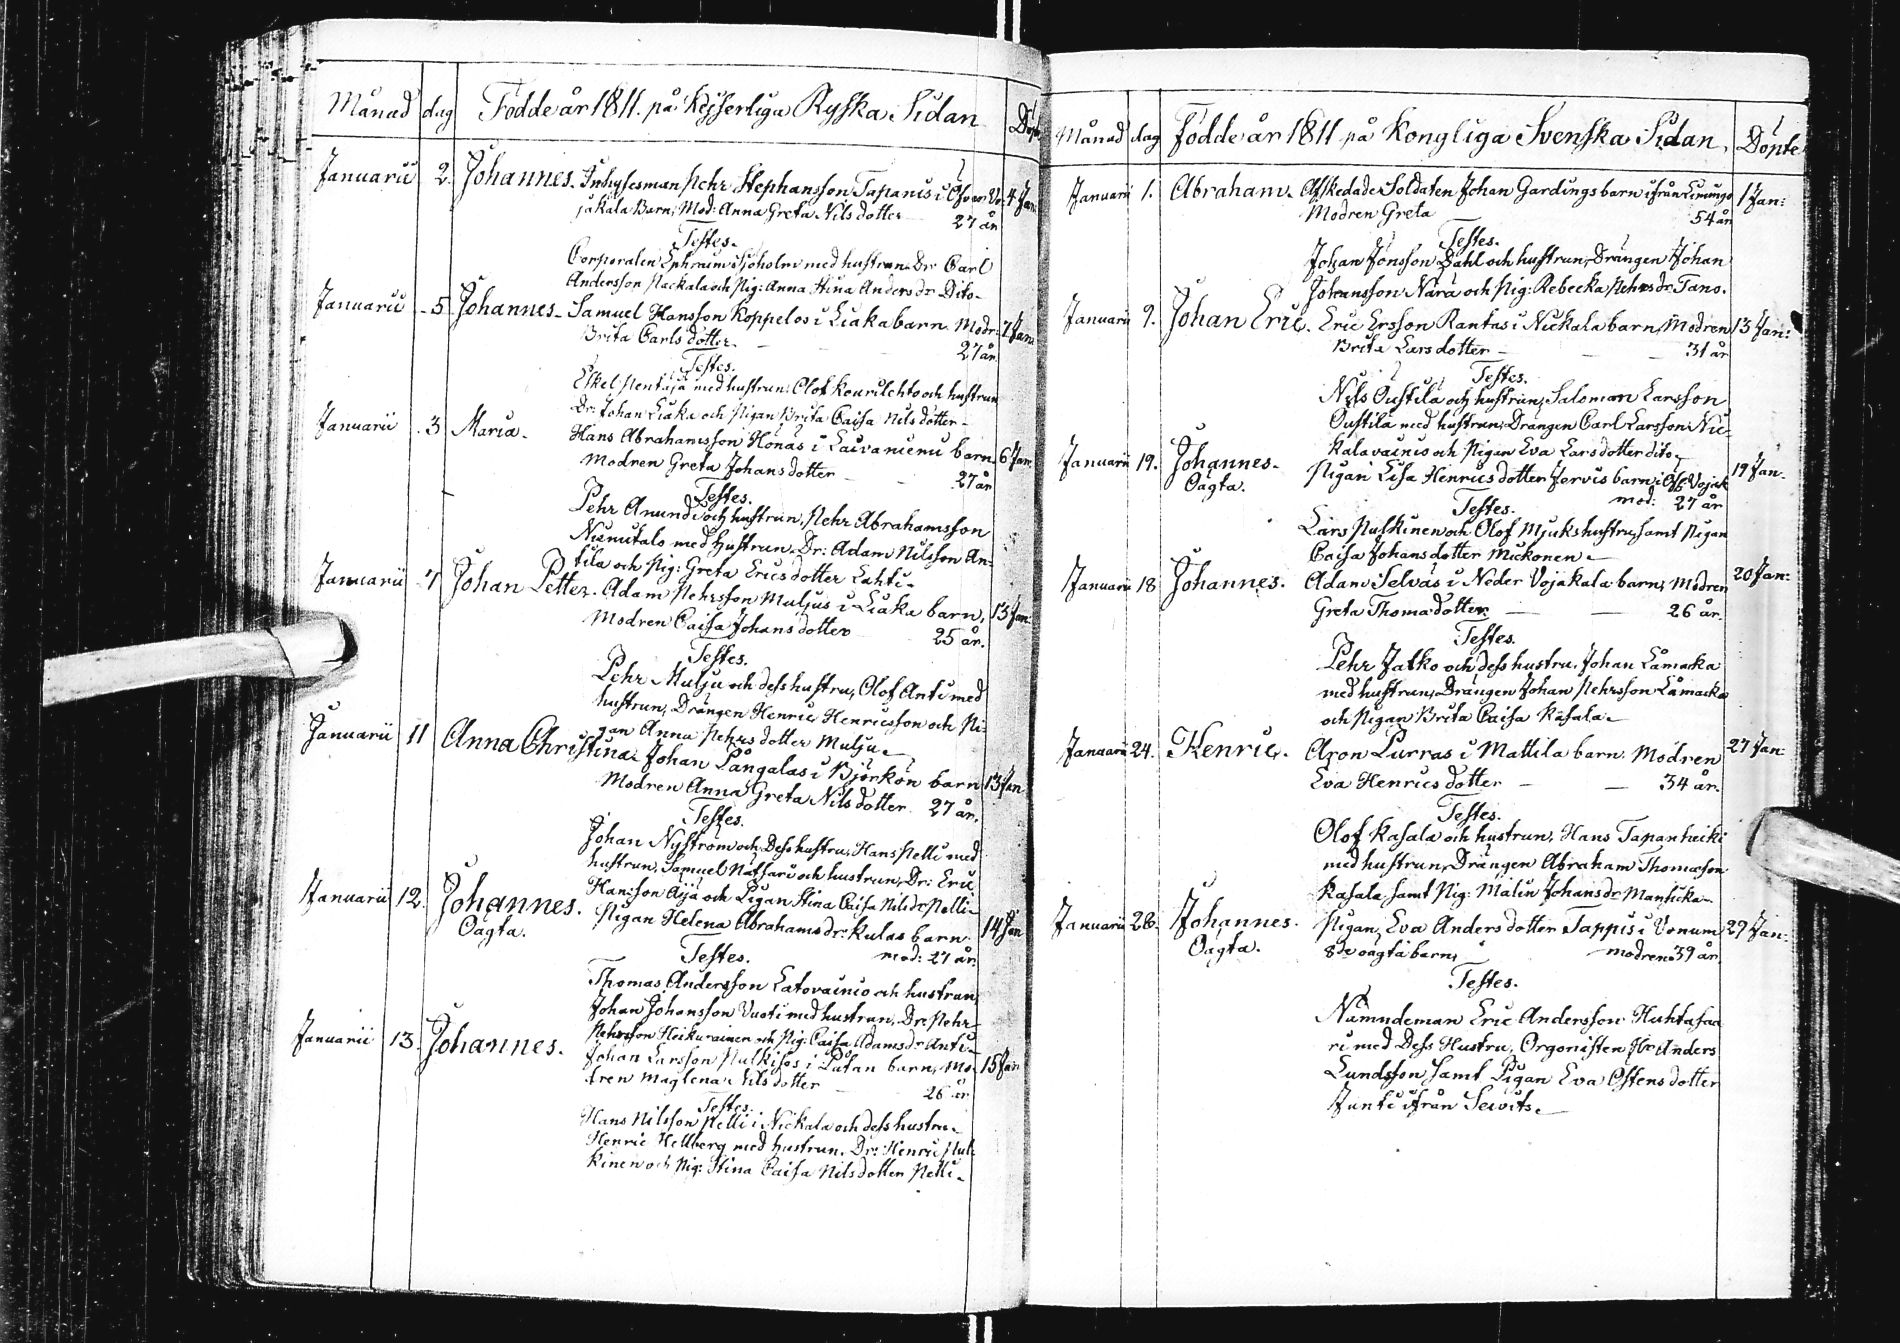 Månad dag Födde år 1811. på Keyserliga Ryska Sidan Döpte
Januarii 2. Johannes. Inhysesman Pehr Stephansson Tapanis i Öfver Vo- 4 Jan:
jakala Barn, Mod: Anna Greta Nils dotter 27 år
Testes.
Corporalen Ephraim Sjöholm med hustrun Dr. Carl
Andersson Plackala och Pig: Anna Stina Anders dr Dito.
Januarii 5 Johannes. Samuel Hansson Koppelos i Liaka barn. Modr: 7 Jan:
Brita Carls dotter 27 år
Testes.
Eskel Pentäjä med hustrun, Olof Keurilehto och hustrun
Dr: Johan Liaka och Pigan Brita Caisa Nils dotter
Januarii 3 Maria. Hans Abrahamsson Honas i Laivaniemi barn 6 Jan:
Modren Greta Johans dotter 27 år
Testes.
Pehr Anundi och hustrun, Pehr Abrahamsson
Niemitalo med hustrun. Dr: Adam Nilsson An-
tila och Pig: Greta Erics dotter Lahti.
Januarii 7 Johan Petter. Adam Pehrsson Muljus i Liaka barn, 13 Jan:
Modren Caisa Johans dotter 25 år.
Testes.
Pehr Mulju och dess hustru, Olof Anti med
hustrun, Drängen Henric Henricsson och Pi-
gan Anna Pehrs dotter Mulju.
Januarii 11 Anna Christina. Johan Pangalas i Björkön barn 13 Jan
Modren Anna Greta Nils dotter 27 år.
Testes.
Johan Nyström och Dess hustru, Hans Pelli med
hustrun, Samuel Natsari och hustrun, Dr: Eric
Hansson Äijä och Pigan Stina Caisa Nils dr Pelli
Januarii 12. Johannes. Pigan Helena Abrahams dr: Kulas barn 14 Jan
Oägta. mod: 27 år.
Testes.
Thomas Andersson Latovainio och hustrun
Johan Johansson Vuoti med hustrun, Dr: Pehr
Pehrsson Heikurainen och Pig: Caisa Adams dr Anti
Januarii 13. Johannes. Johan Larsson Pulkisos i Palan barn, Mo- 15 Jan
dren Maglena Nils dotter 26 år
Testes.
Hans Nilsson Pelli i Nickala och dess hustru
Henric Hellberg med hustrun. Dr: Henric
kinen och Pig: Stina Caisa Nils dotter Pelli.
Månad dag Födde år 1811 på Kongliga Svenska Sidan. Döpte
Januarii 1. Abraham. Afskedade Soldaten Johan Gardings barn ifrån 1 Jan:
Modren Greta 54 år
Testes.
Johan Jönsson Dahl och hustrun, Drängen Johan
Johansson Nara och Pig: Rebecka Pehrs dr Tano.
Januarii 9. Johan Eric. Eric Ersson Rantas i Nickala barn, Modren 13 Jan:
Brita Lars dotter 31 år
Testes.
Nils Oustila och hustrun, Salomon Larsson
Oustila med hustrun, Drängen Carl Larsson Nic-
kalavainio och Pigan Eva Lars dotter dito
Januarii 19. Johannes. Pigan Lisa Henrics dotter Jervis barn i Öfv. Vojak 19 Jan.
Oägta. mod: 27 år
Testes.
Lars Puskinen och Olof Mjuks hustru, samt Pigan
Caisa Johans dotter Mickonen.
Januarii 18 Johannes. Adam Selväs i Neder Vojakala barn, Modren 20 Jan:
Greta Thomadotter 26 år.
Testes.
Pehr Jatko och dess hustru, Johan Låmacka
med hustrun, Drängen Johan Pehrsson Låmacka
och Pigan Brita Caisa Kasala.
Januarii 24. Henric. Aron Purras i Mattila barn. Modren 27 Jan
Eva Henrics dotter 34 år.
Testes.
Olof Kasala och hustrun, Hans Tapanheiki
med hustrun, Drängen Abraham Thomasson
Kasala, samt Pig: Malin Johans dr Manticka
Januarii 28. Johannes. Pigan, Eva Anders dotter Tappis i Vonum 29 Jan:
Oägta. 8de oägta barn, modren 39 år.
Testes.
Nämndeman Eric Andersson Huhtasaa
ri med Dess Hustru, Orgonisten Hr Anders
Lundsson samt Pigan Eva Ostens dotter
Junti ifrån Seivits.